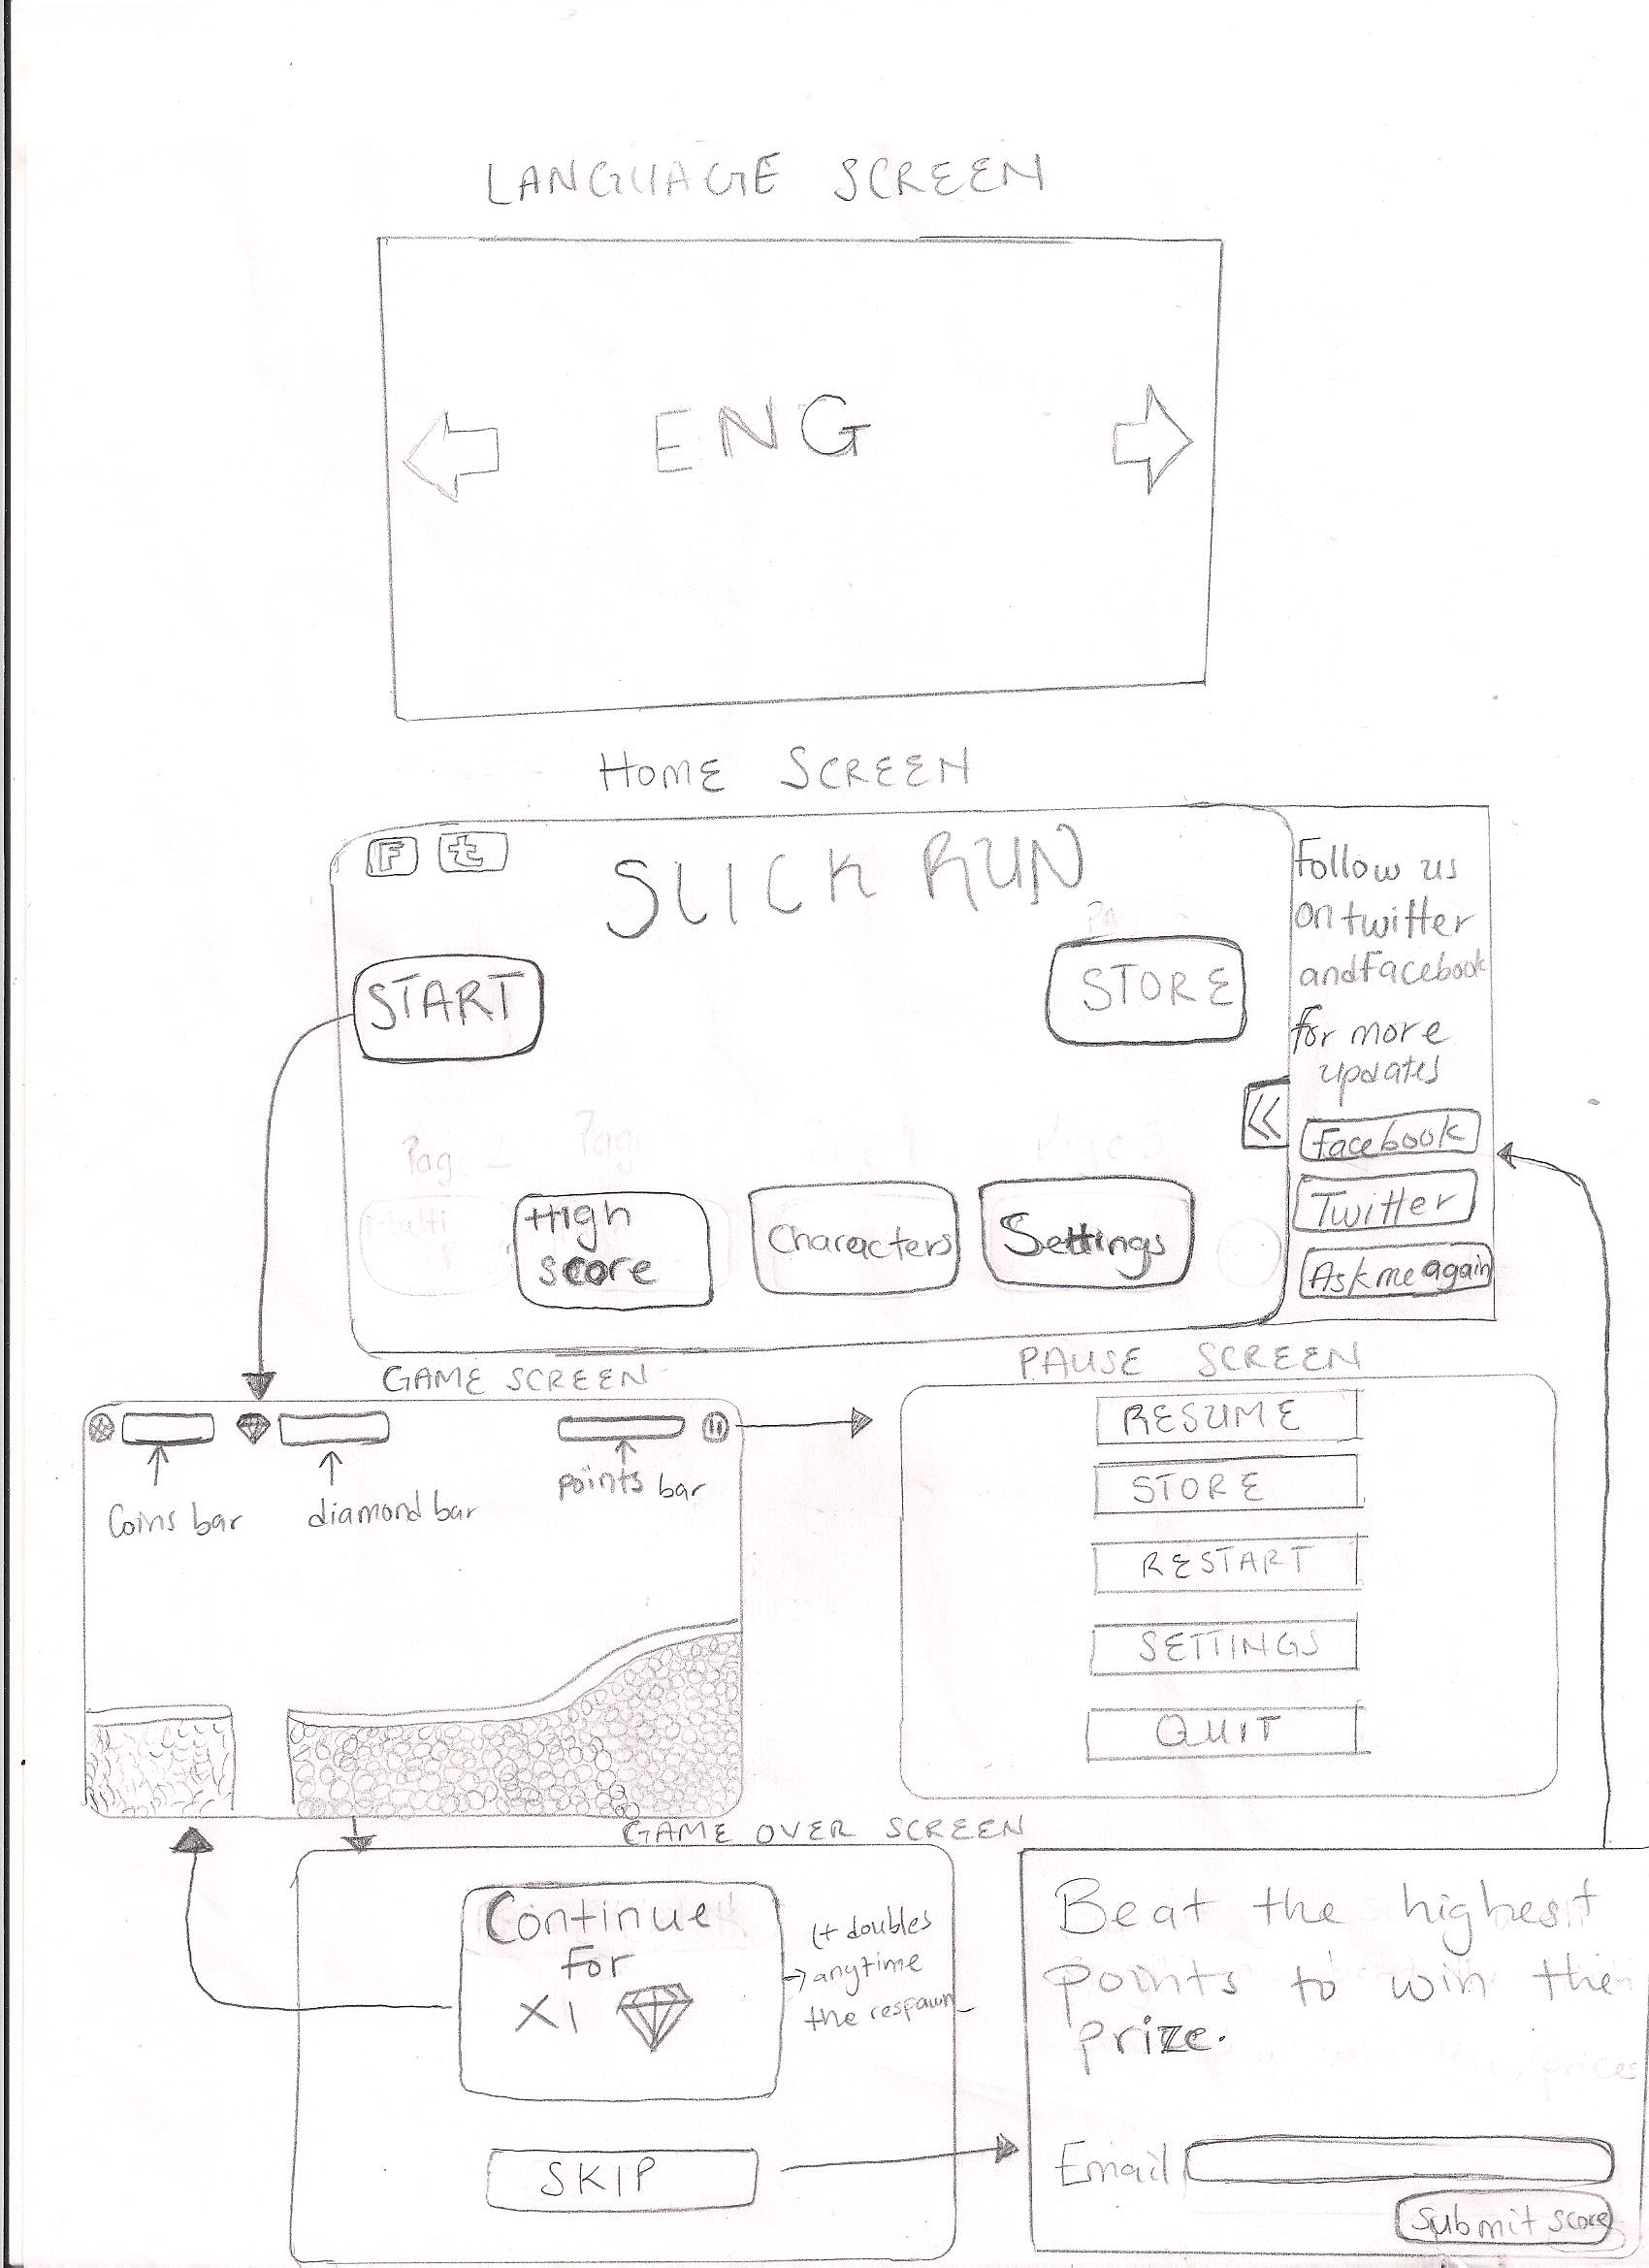 LANGUAGE SCREEN
ENG
HOME SCREEN
F t
SLICK RUN
START
STORE
High
score
Characters
Settings
Follow us
on twitter
and Facebook
for more
updates
Facebook
Twitter
Ask me again
Pag 2
Pag
Multi
GAME SCREEN
Coins bar
diamond bar
points bar
PAUSE SCREEN
RESUME
STORE
RESTART
SETTINGS
QUIT
GAME OVER SCREEN
Continue
for
X1
It doubles
anytime
the respawn
SKIP
Beat the highest
points to win the
prize.
Email
Submit score